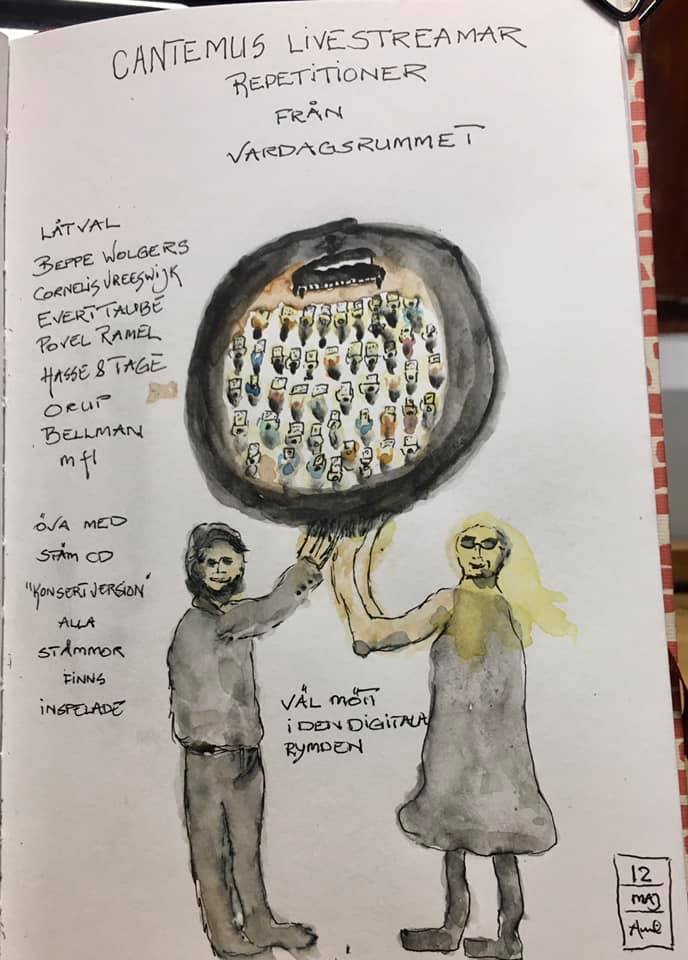 CANTEMUS LIVESTREAMAR
REPETITIONER
FRÅN
VARDAGSRUMMET
LÅTVAL
BEPPE WOLGERS
CORNELIS VREESWIJK
EVERT TAUBE
POVEL RAMEL
HASSE & TAGE
ORUP
BELLMAN
m fl
ÖVA MED
STÄM CD
"KONSERTVERSION"
ALLA
STÄMMOR
FINNS
INSPELADE
VÄL MÖTT
I DEN DIGITALA
RYMDEN
12
MAJ